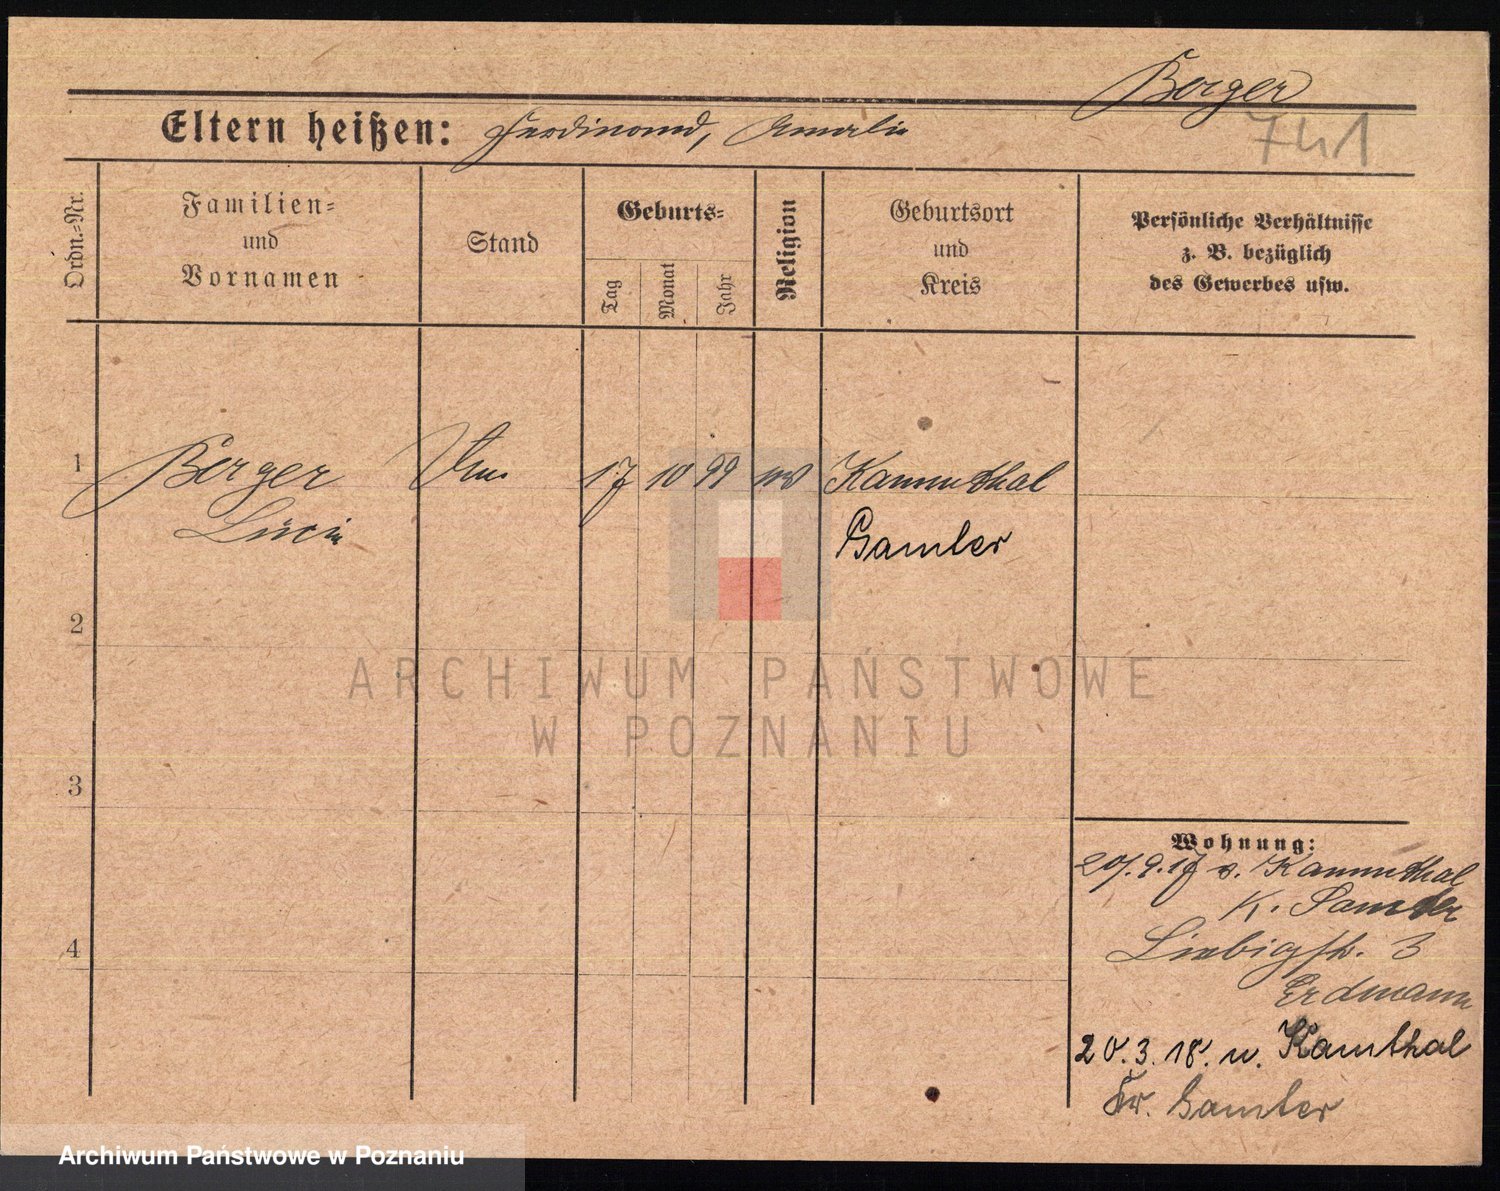 Berger
741
Eltern heißen: Ferdinand, Amalie
Ordn.=Nr.
Familien=
und
Vornamen
Stand
Geburts=
Tag
Monat
Jahr
Religion
Geburtsort
und
Kreis
Persönliche Verhältnisse
z. B. bezüglich
des Gewerbes usw.
1
Berger
17 10 99
Kammthal
Lucie
Samter
2
ARCHIWUM PAŃSTWOWE
W POZNANIU
3
Wohnung:
20/.9.17 v. Kammthal
K. Samter
4
Liebigstr. 3
Erdmann
20.3.18. n. Kamthal
Kr. Samter
Archiwum Państwowe w Poznaniu